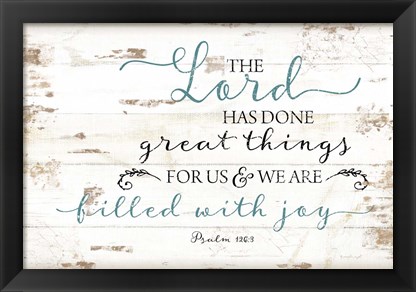 THE
Lord
HAS DONE
great things
FOR US & WE ARE
filled with joy
Psalm 126:3